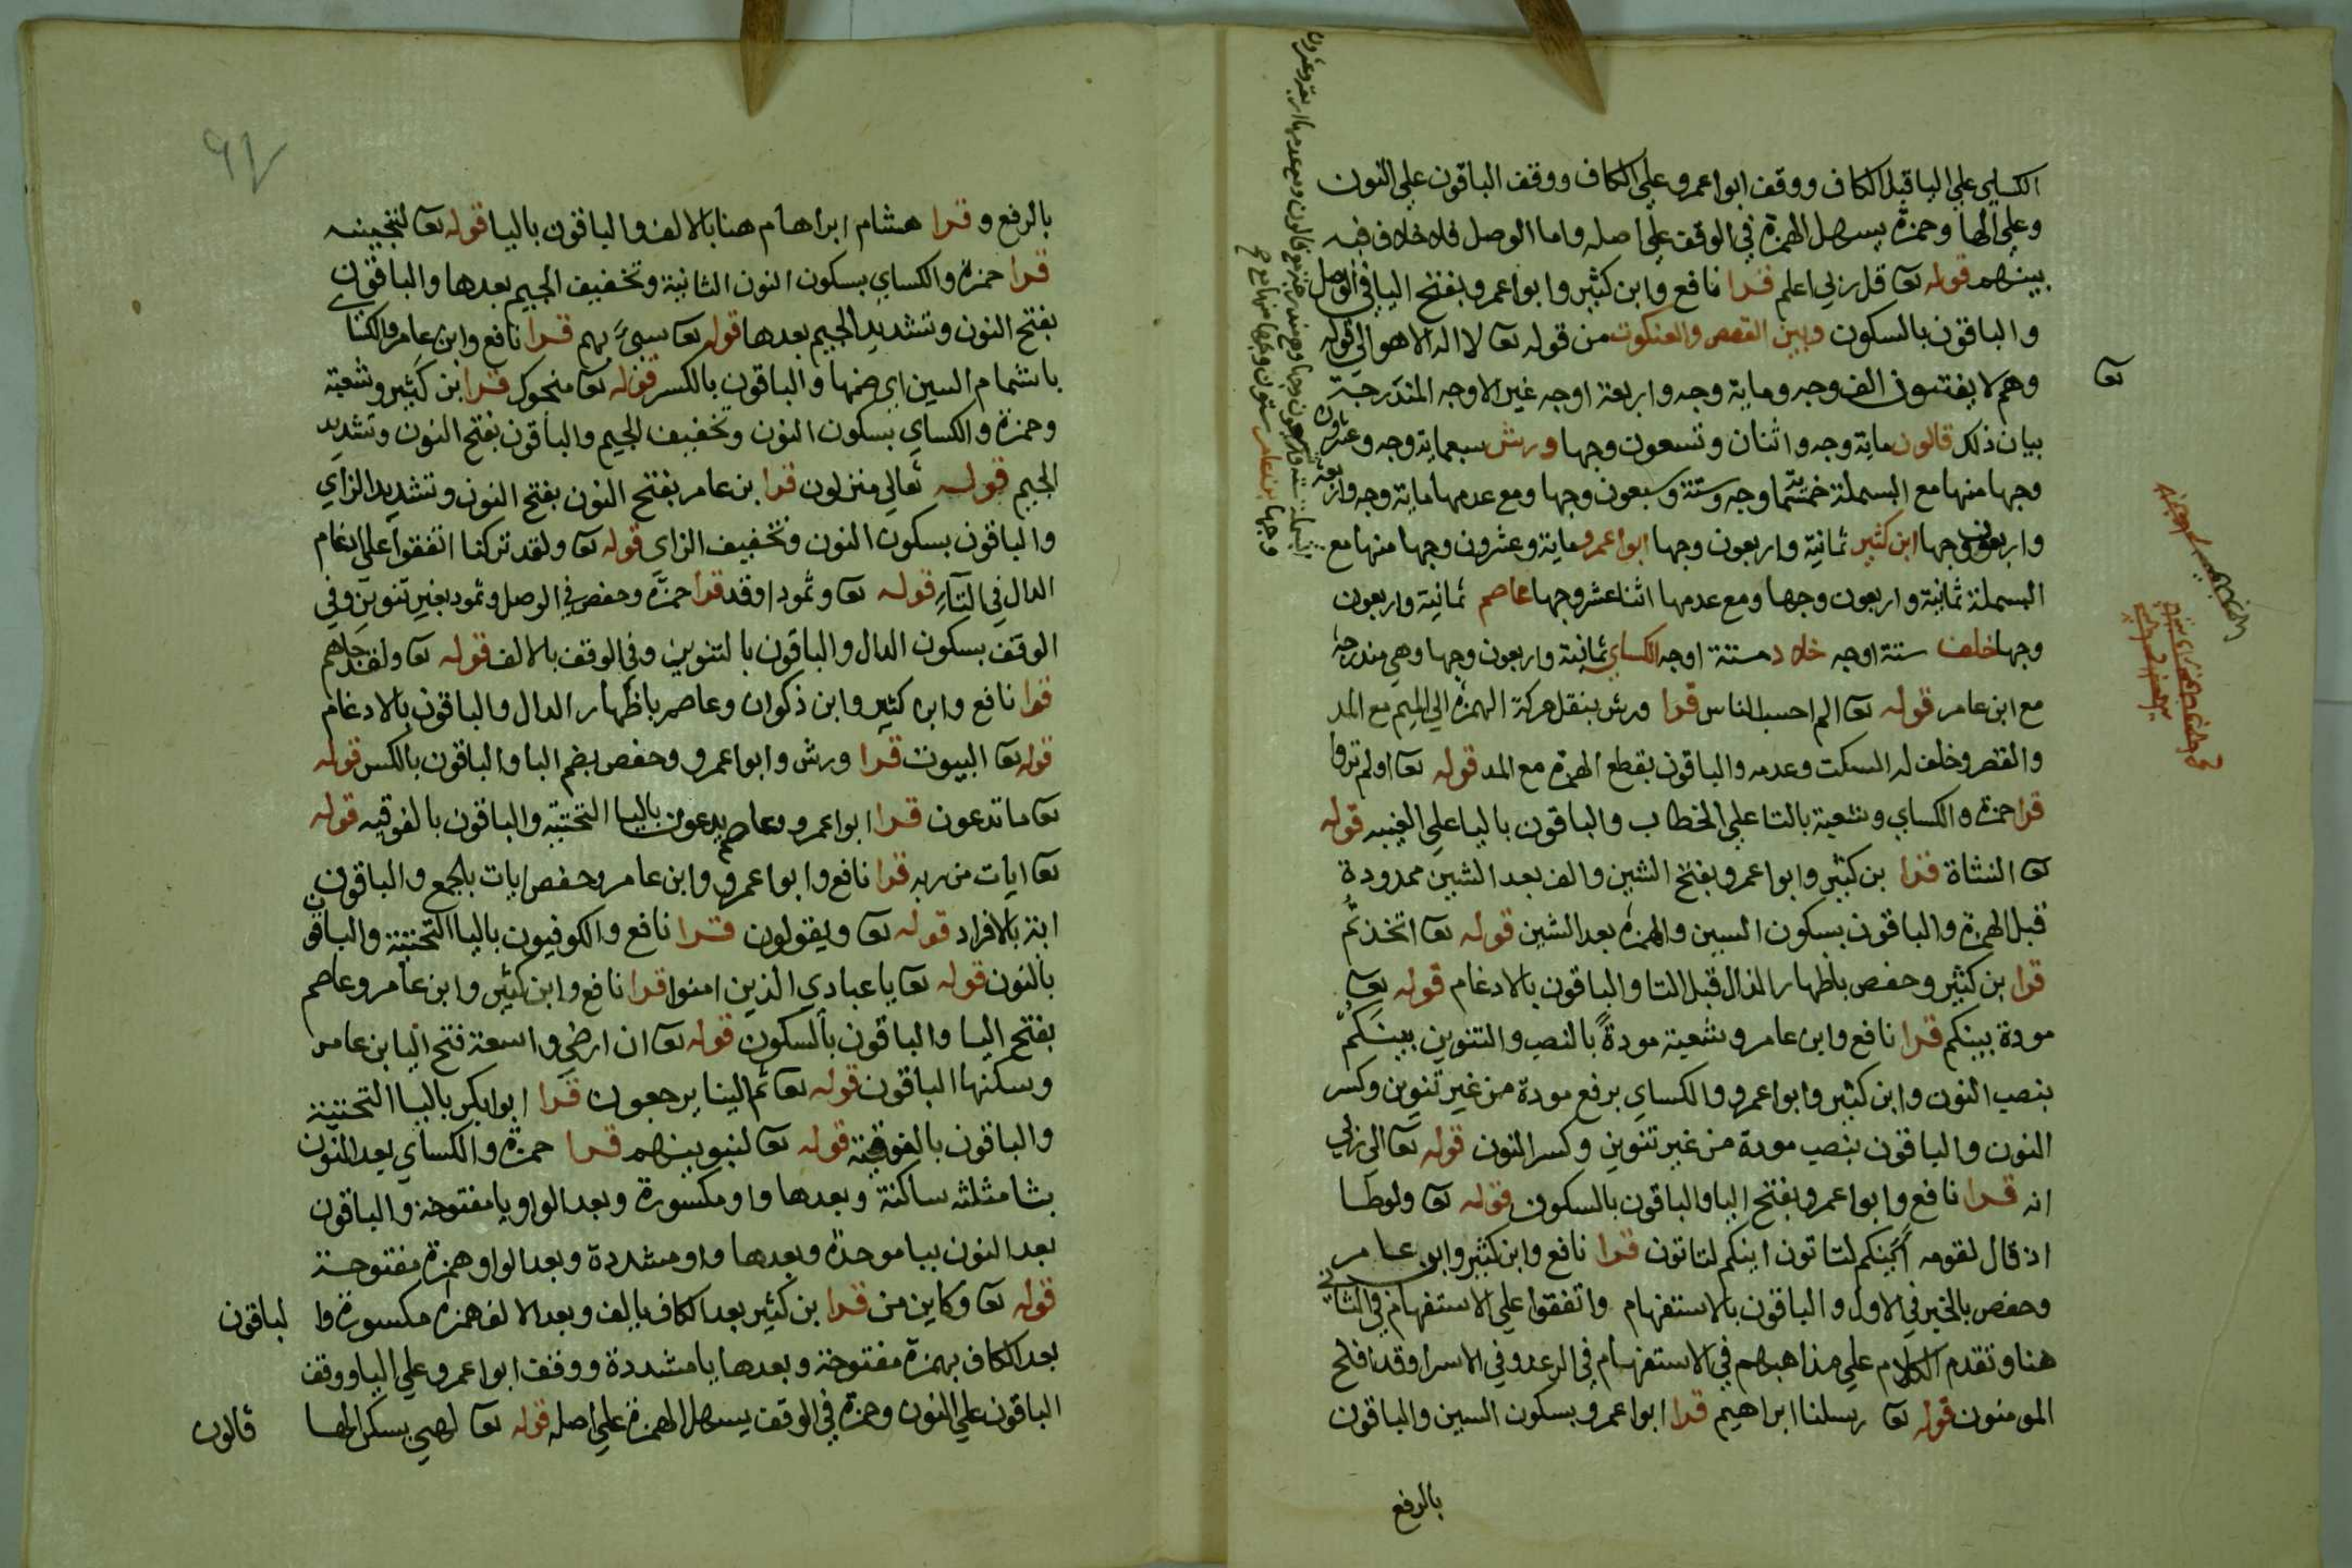 الكساي علي اليا قبل الكاف ووقف ابوا عمرو علي الكاف ووقف الباقون علي النون
وعلي الها وحمزة يسهل الهمزة في الوقف علي اصله واما الوصل فلا خلاف فيه
بينهم قوله تعا قل ربي اعلم قرا نافع وابن كثير وابوا عمرو بفتح اليا في الوصل
والباقون بالسكون وبين القصص والعنكبوت من قوله تعا لا اله الا هو الي قوله
تعا
وهم لا يفتنون الف وجه وماية وجه واربعة اوجه غير الاوجه المندرجة
بيان ذلك قالون ماية وجه واثنان وتسعون وجها ورش سبعماية وجه وعشرون
وجها منها مع البسملة خمسماية وجه وستة وسبعون وجها ومع عدمها ماية وجه واربعة
واربعون وجها ابن كثير ثمانية واربعون وجها ابوا عمرو ماية وعشرون وجها منها مع
البسملة ثمانية واربعون وجها ومع عدمها اثنا عشر وجها عاصم ثمانية واربعون
وجها خلف ستة اوجه خلاد ستة اوجه الكساي ثمانية واربعون وجها وهي مندرجة
مع ابن عامر قوله تعا الم احسب الناس قرا ورش بنقل حركة الهمزة الي الميم مع المد
والقصر وخلف له السكت وعدمه والباقون بقطع الهمزة مع المد قوله تعا اولم تروا
قرا حمزة والكساي وشعبة بالتا علي الخطاب والباقون باليا علي الغيبه قوله
تعا النشاة قرا بن كثير وابوا عمرو بفتح الشين والف بعد الشين ممدودة
قبل الهمزة والباقون بسكون الشين والهمزة بعد الشين قوله تعا اتخذتم
قرا بن كثير وحفص باظهار الذال قبل التا والباقون بالادغام قوله تعا
مودة بينكم قرا نافع وابن عامر وشعبة مودةً بالنصب والتنوين بينَكم
بنصب النون وابن كثير وابوا عمرو والكساي برفع مودة من غير تنوين وكسر
النون والباقون بنصب مودة من غير تنوين وكسر النون قوله تعا الي ربي
انه قرا نافع وابوا عمرو بفتح اليا والباقون بالسكون قوله تعا ولوطا
اذ قال لقومه اينكم لتاتون اينكم لتاتون قرا نافع وابن كثير وابن عامر
وحفص بالخبر في الاول والباقون بالاستفهام واتفقوا علي الاستفهام في الثاني
هنا وتقدم الكلام علي مذاهبهم في الاستفهام في الرعد وفي الاسرا وقد افلح
المومنون قوله تعا رسلنا ابراهيم قرا ابوا عمرو بسكون السين والباقون
بالرفع
بالرفع وقرا هشام ابراهام هنا بالالف والباقون باليا قوله تعا لننجينه
قرا حمزة والكساي بسكون النون الثانية وتخفيف الجيم بعدها والباقون
بفتح النون وتشديد الجيم بعدها قوله تعا سيء بهم قرا نافع وابن عامر والكساي
باشمام السين اي ضمها والباقون بالكسر قوله تعا منجوك قرا ابن كثير وشعبة
وحمزة والكساي بسكون النون وتخفيف الجيم والباقون بفتح النون وتشديد
الجيم قوله تعالي منزلون قرا بن عامر بفتح النون بفتح النون وتشديد الزاي
والباقون بسكون النون وتخفيف الزاي قوله تعا ولقد تركنا اتفقوا علي ادغام
الدال في التاء قوله تعا وثمود اوقد قرا حمزة وحفص في الوصل وثمود بغير تنوين وفي
الوقف بسكون الدال والباقون بالتنوين وفي الوقف بالالف قوله تعا ولقد جاهم
قرا نافع وابن كثير وابن ذكوان وعاصم باظهار الدال والباقون بالادغام
قوله تعا البيوت قرا ورش وابوا عمرو وحفص بضم البا والباقون بالكسر قوله
تعا ما تدعون قرا ابوا عمرو وعاصم يدعون باليا التحتيه والباقون بالفوقيه قوله
تعا ايات من ربه قرا نافع وابوا عمرو وابن عامر وحفص ايات بالجمع والباقون
اية بالافراد قوله تعا ويقولون قرا نافع والكوفيون باليا التحتية والباقون
بالنون قوله تعا يا عبادي الذين امنوا قرا نافع وابن كثير وابن عامر وعاصم
بفتح اليا والباقون بالسكون قوله تعا ان ارضي واسعة فتح اليا بن عامر
وسكنها الباقون قوله تعا ثم الينا يرجعون قرا ابوا بكر باليا التحتية
والباقون بالفوقية قوله تعا لنبوينهم قرا حمزة والكساي بعد النون
بثا مثلثه ساكنة وبعدها واو مكسورة وبعد الواو يا مفتوحة والباقون
بعد النون ببا موحدة وبعدها واو مشددة وبعد الواو همزة مفتوحة
قوله تعا وكاين من قرا بن كثير بعد الكاف بالف وبعد الالف همزة مكسورة وا لباقون
بعد الكاف بهمزة مفتوحة وبعدها يا مشددة ووقف ابوا عمرو علي اليا ووقف
الباقون علي النون وحمزة في الوقف يسهل الهمزة علي اصله قوله تعا لهي يسكن الها
قالون